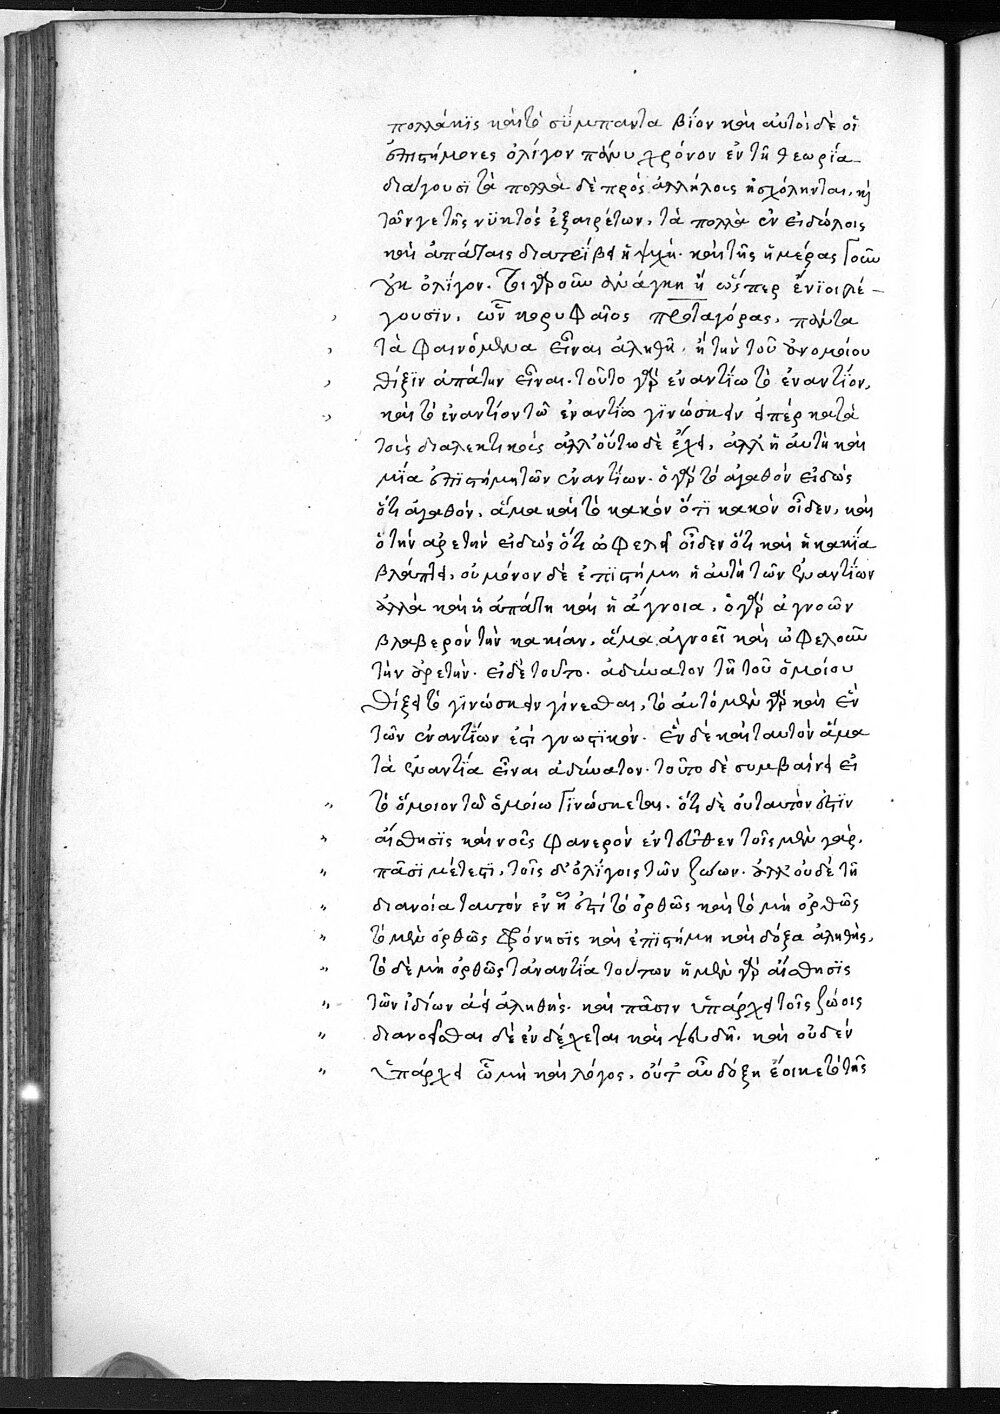 πολλάκϊς καὶ τὸ σΰμπαντα βΐον καὶ αὐτοὶ δὲ οἵ
ἐπιστήμονες ὀλίγον πάνυ χρόνον ἐν τῆ θεωρΐα
διάγουσϊ τὰ πολλὰ δὲ πρὸς ἀλλήλοις ἠσχόληνται, κỳ
τῶν γε τῆς νϋκτὸς ἐξαιρέτων, τὰ πολλὰ ἐν εἰδώλοις
καὶ ἀπάταις διατρίβει ἡ ψυχή. καὶ τῆς ἡμέρας γοῦν
οὐκ ὀλίγον. Τι γὰρ οὖν ἀνάγκη ἢ ὥσπερ ἔνϊοι λέ-
γουσϊν, ὧν κορυφαῖος πρωταγόρας, πάντα
τὰ φαινόμενα εἶναι ἀληθῆ. ἢ τὴν τοῦ ἀνομοίου
θίξϊν ἀπάτην εἶναι. τοῦτο γὰρ ἐναντΐω τὸ ἐναντΐον,
καὶ τὸ ἐναντίον τῶ ἐναντΐω γϊνώσκειν εἰπὲρ κατὰ
τοὺς διαλεκτικοὺς ἀλλ' οὕτω δὲ ἔχει, ἀλλ' ἡ αὐτὴ καὶ
μΐα ἐπϊστήμη τῶν ἐναντΐων. ὁ γὰρ τὸ ἀγαθὸν εἰδὼς
ὅτι ἀγαθὸν, ἅμα καὶ τὸ κακὸν ὅτϊ κακὸν οἶδεν, καὶ
ὁ τὴν ἀρετὴν εἰδὼς ὅτι ὠφελεῖ οἶδεν ὅτι καὶ ἡ κακΐα
βλάπτει, οὐ μόνον δὲ ἐπϊστήμη ἡ αὐτὴ τῶν ἐναντΐων
ἀλλὰ καὶ ἡ ἀπάτη καὶ ἡ ἄγνοια, ὁ γὰρ ἀγνοῶν
βλαβερὸν τὴν κακίαν, ἅμα ἀγνοεῖ καὶ ὠφελοῦν
τὴν ἀρετήν. εἰ δὲ τοῦτο. ἀδύνατον τῆ τοῦ ὁμοίου
θίξει τὸ γϊνώσκειν γίνεσθαι, τὸ αὐτὸ μὲν γὰρ καὶ ἓν
τῶν ἐναντΐων ἐστὶ γνωστϊκόν. ἓν δὲ καὶ ταυτὸν ἅμα
τὰ ἐναντΐα εἶναι ἀδύνατον. τοῦτο δὲ συμβαίνει εἰ
τὸ ὅμοιον τῶ ὁμοίω γϊνώσκεται. ὅτι δὲ οὐ ταυτὸν ἐστϊν
αἴσθησϊς καὶ νοῦς φανερὸν ἐντεῦθεν τοῖς μὲν γὰρ.
πᾶσϊ μέτεστι, τοῖς δ' ὀλΐγοις τῶν ζώων. ἀλλ' οὐδὲ τῆ
διανοία ταυτὸν ἐν ᾗ ἐστὶ τὸ ὀρθῶς καὶ τὸ μὴ ὀρθῶς
τὸ μὲν ὀρθῶς φρόνησϊς καὶ ἐπϊστήμη καὶ δόξα ἀληθὴς,
τὸ δὲ μὴ ὀρθῶς τἀναντΐα τούτων ἡ μὲν γὰρ αἴσθησϊς
τῶν ἰδίων ἀεὶ ἀληθὴς. καὶ πᾶσιν ὑπάρχει τοῖς ζώοις
διανοεῖσθαι δὲ ἐνδέχεται καὶ ψευδῆ. καὶ οὐδὲν
ὑπάρχει ὧ μὴ καὶ λόγος, οὔτ' αὖ δόξη ἔοικε τὸ τῆς